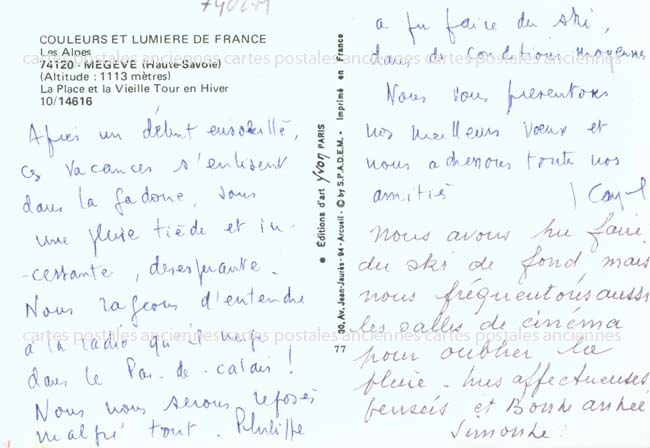 74120-M
COULEURS ET LUMIERE DE FRANCE
Les Alpes
74120 - MEGEVE (Haute-Savoie)
(Altitude : 1113 mètres)
La Place et la Vieille Tour en Hiver
10/14616
Après un début ensoleillé,
ces vacances s'enlisent
dans la gadoue, sous
une pluie tiède et in-
-cessante, désespérante.
Nous rageons d'entendre
à la radio qu'il neige
dans le Pas-de-Calais !
Nous nous serons reposés
malgré tout. Philippe
● Editions d'art Yvon PARIS
30, Av. Jean-Jaurès - 94 - Arcueil - © by S.P.A.D.E.M. - Imprimé en France
77
a pu faire du ski,
dans des conditions moyennes
Nous vous présentons
nos meilleurs vœux et
nous adressons toutes nos
amitiés
Nous avons pu faire
du ski de fond, mais
nous fréquentons aussi
les salles de cinéma
pour oublier la
pluie. Mes affectueuses
pensées et Bonne année
Simone
cartes postales anciennes cartes postales anciennes cartes postales anciennes
cartes postales anciennes cartes postales anciennes cartes postales anciennes